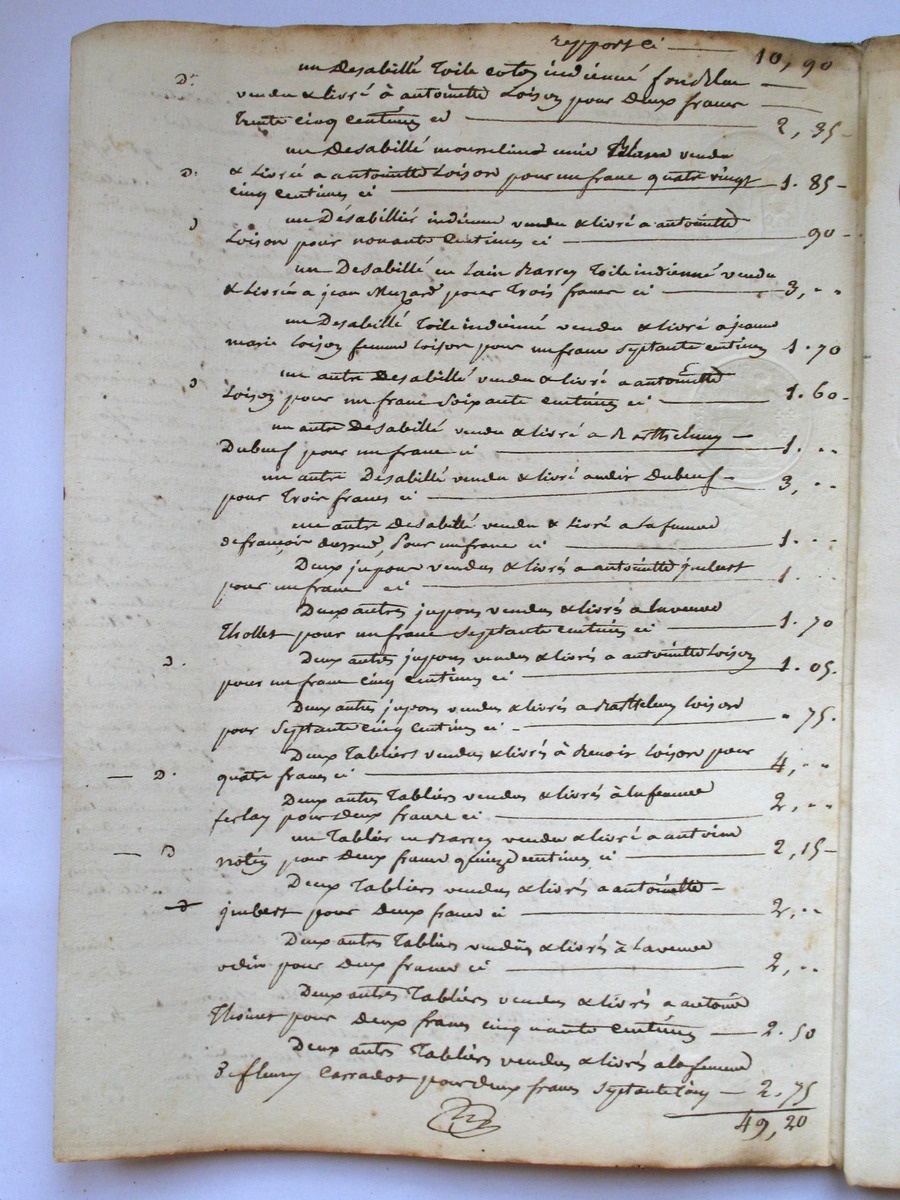 report ci 10, 90
D.r un Desabillé Toile coton indienné fond blue
vendu & livré à antoinette Loison pour Deux francs
trente cinq centimes ci 2, 35
un Desabillé mousseline unie vendu
D. & Livré a antoinette Loison pour un franc quatre vingt
cinq centimes ci 1. 85
un Désabillié indienne vendu & livré a antoinette
Loison pour nonante Centimes ci 90
un Desabillé en Toile indienné vendu
& Livrés a jean Muzard pour Trois francs ci 3, " "
un Desabillé Toile indienné vendu & livré a jeanne
marie Loison femme Loison pour un franc Septante centimes 1. 70
un autre Desabillé vendu & livré a antoinette
Loison pour un franc Soixante Centimes ci 1. 60
un autre Desabillé vendu & livré a Barthelemy
Dubeuf pour un franc ci 1. " "
un autre Désabillé vendu & livré audit Dubeuf
pour Trois francs ci 3, " "
un autre Desabillé vendu & Livré a la femme
de françois pour un franc ci 1. " "
Deux jupons vendus & livrés a antoinette jmbert
pour un franc ci 1. " "
Deux autres jupons vendus & livrés a la veuve
Thollet pour un franc Septante Centimes ci 1. 70
D. Deux autres jupons vendus & livrés a antoinette Loison
pour un franc Cinq Centimes ci 1. 05.
Deux autres jupons vendus & livrés a Barthelemy Loison
pour Septante cinq Centimes ci " 75.
Deux Tabliers vendus & livrés à Benoit Loison pour
D. quatre francs ci 4, " "
Deux autres Tabliers vendus & livrés à la femme
ferlay pour Deux francs ci 2, " "
un Tablier en vendu & livré a antoine
D pour Deux francs quinze centimes ci 2, 15
Deux Tabliers vendus & livrés a antoinette
D jmbert pour Deux francs ci 2, " "
Deux autres Tabliers vendus & livrés à La veuve
odin pour Deux francs ci 2, " "
Deux autres Tabliers vendus & livrés a antoine
Thoinet pour Deux francs cinquante Centimes 2. 50
Deux autres Tabliers vendus & livrés a la femme
de fleury Carrados pour deux francs Septante Cinq 2. 75
49, 20